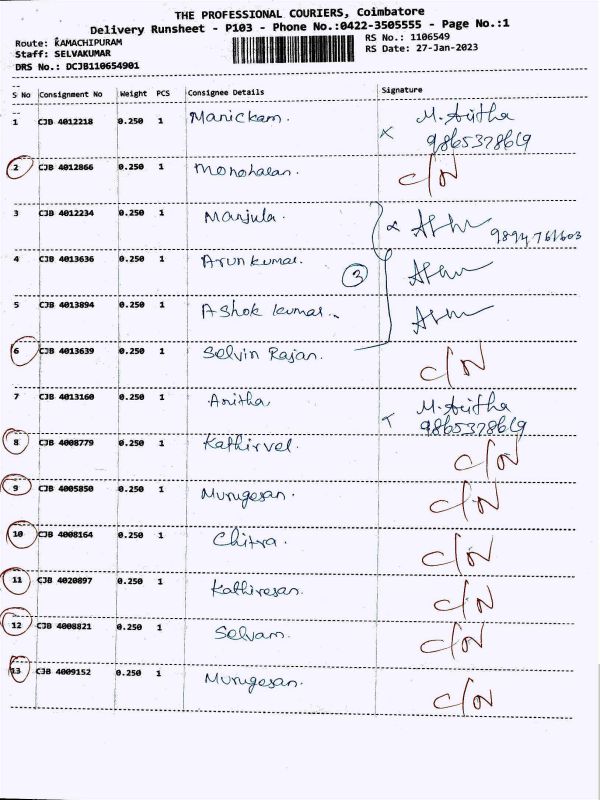 THE PROFESSIONAL COURIERS, Coimbatore
Delivery Runsheet - P103 - Phone No.:0422-3505555 - Page No.:1
Route: RAMACHIPURAM
Staff: SELVAKUMAR
DRS No.: DCJB110654901
RS No.: 1106549
RS Date: 27-Jan-2023
S No Consignment No Weight PCS Consignee Details Signature
1 CJB 4012218 0.250 1 Manickam. x M. Anitha
9865378619
2 CJB 4012866 0.250 1 Manoharan. C/N
3 CJB 4012234 0.250 1 Manjula. x
9894761603
4 CJB 4013636 0.250 1 Arunkumar. 3
5 CJB 4013894 0.250 1 Ashok kumar.
6 CJB 4013639 0.250 1 Selvin Rajan. C/N
7 CJB 4013160 0.250 1 Anitha M. Anitha
9865378619
8 CJB 4008779 0.250 1 Kathirvel C/N
9 CJB 4005850 0.250 1 Murugesan. C/N
10 CJB 4008164 0.250 1 Chitra. C/N
11 CJB 4020897 0.250 1 Kathiresan. C/N
12 CJB 4008821 0.250 1 Selvam. C/N
13 CJB 4009152 0.250 1 Murugesan. C/N